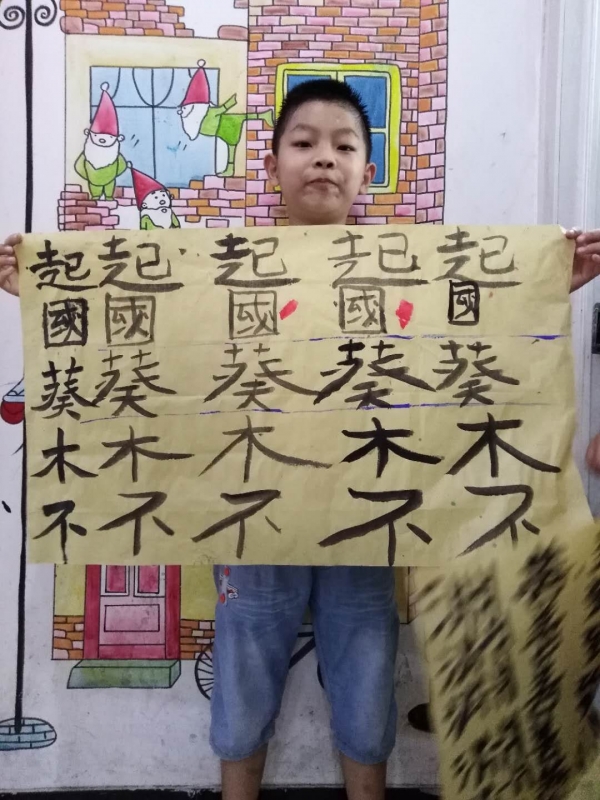 起起起起起
國國國國國
葵葵葵葵葵
木木木木木
不不不不不